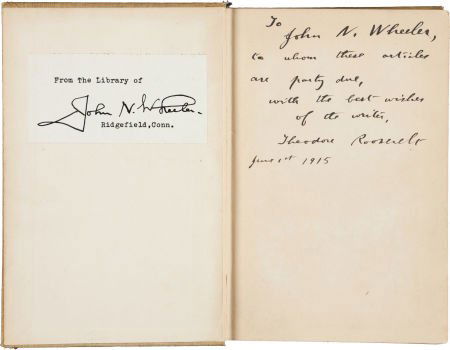 From The Library of
John N. Wheeler.
Ridgefield,Conn.
To
John N. Wheeler,
to whom these articles
are partly due,
with the best wishes
of the writer,
Theodore Roosevelt
June 1st 1915